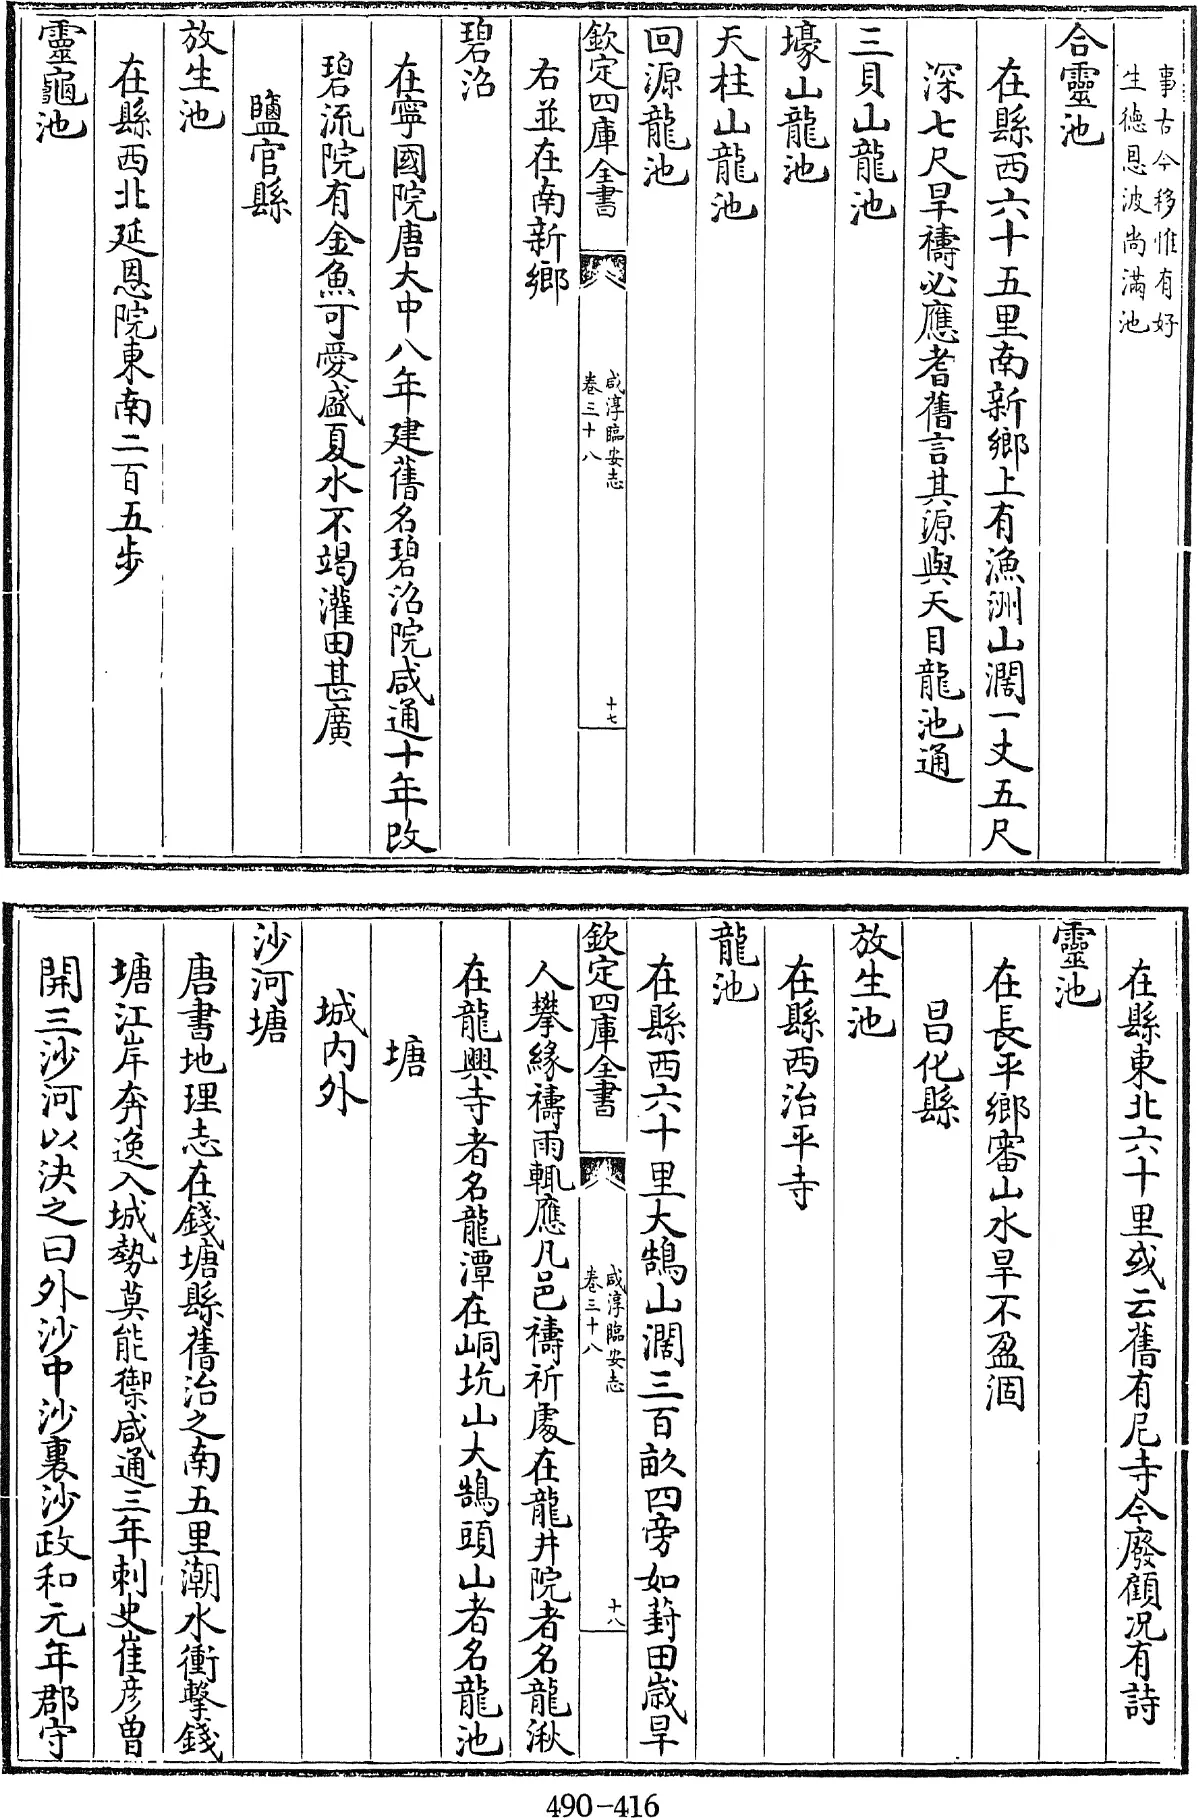 事古今移惟有好
生德恩波尚滿池
合靈池
在縣西六十五里南新鄉上有漁洲山濶一丈五尺
深七尺旱禱必應耆舊言其源與天目龍池通
三貝山龍池
壕山龍池
天柱山龍池
回源龍池
欽定四庫全書
咸淳臨安志
卷三十八
十七
右並在南新鄉
碧沼
在寧國院唐大中八年建舊名碧沼院咸通十年改
碧流院有金魚可愛盛夏水不竭灌田甚廣
鹽官縣
放生池
在縣西北延恩院東南二百五步
靈龜池
在縣東北六十里或云舊有尼寺今廢顧况有詩
靈池
在長平鄉審山水旱不盈涸
昌化縣
放生池
在縣西治平寺
龍池
在縣西六十里大鵠山濶三百畝四旁如葑田歲旱
欽定四庫全書
咸淳臨安志
卷三十八
十八
人攀緣禱雨輒應凡邑禱祈處在龍井院者名龍湫
在龍興寺者名龍潭在峒坑山大鵠頭山者名龍池
塘
城内外
沙河塘
唐書地理志在錢塘縣舊治之南五里潮水衝擊錢
塘江岸奔逸入城勢莫能禦咸通三年刺史崔彦曾
開三沙河以決之曰外沙中沙裏沙政和元年郡守
490-416